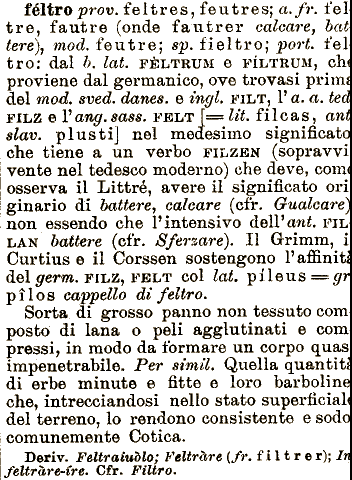 féltro prov. feltres, feutres; a. fr. fel
tre, fautre (onde fautrer calcare, bat
tere), mod. feutre; sp. fieltro; port. fel
tro: dal b. lat. FÈLTRUM e FÍLTRUM, che
proviene dal germanico, ove trovasi prima
del mod. sved. danes. e ingl. FILT, l'a. a. ted
FILZ e l'ang. sass. FELT [= lit. filcas, ant
slav. plusti] nel medesimo significato
che tiene a un verbo FILZEN (sopravvi
vente nel tedesco moderno) che deve, come
osserva il Littré, avere il significato ori
ginario di battere, calcare (cfr. Gualcare)
non essendo che l'intensivo dell'ant. FIL
LAN battere (cfr. Sferzare). Il Grimm, i
Curtius e il Corssen sostengono l'affinità
del germ. FILZ, FELT col lat. píleus = gr
pîlos cappello di feltro.
Sorta di grosso panno non tessuto com
posto di lana o peli agglutinati e com
pressi, in modo da formare un corpo quas
impenetrabile. Per simil. Quella quantità
di erbe minute e fitte e loro barboline
che, intrecciandosi nello stato superficiale
del terreno, lo rendono consistente e sodo
comunemente Cotica.
Deriv. Feltraiuòlo; Feltràre (fr. filtrer); In
feltràre-íre. Cfr. Filtro.